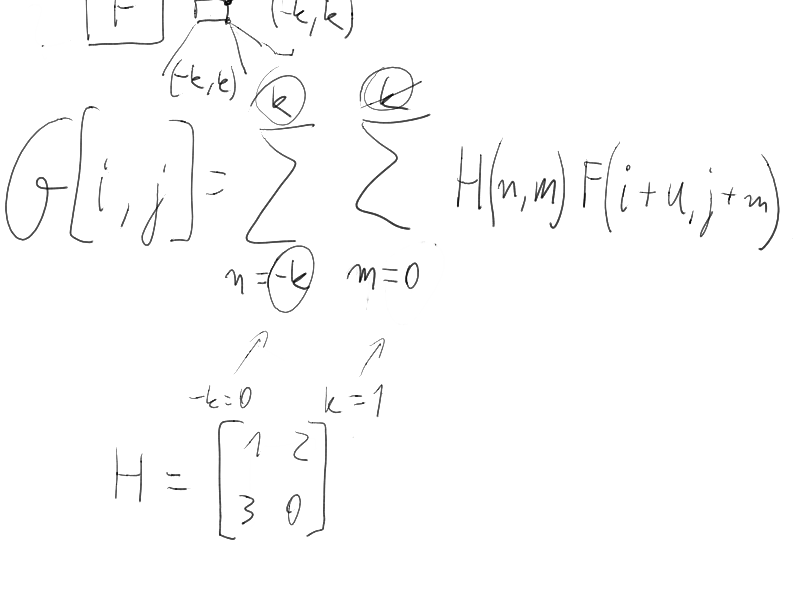 F (-k, k)
(-k, k)
G[i, j] = ∑_{n=-k}^{k} ∑_{m=0}^{k} H(n, m) F(i+u, j+m)
-k=0 k=1
H = [1 2
3 0]